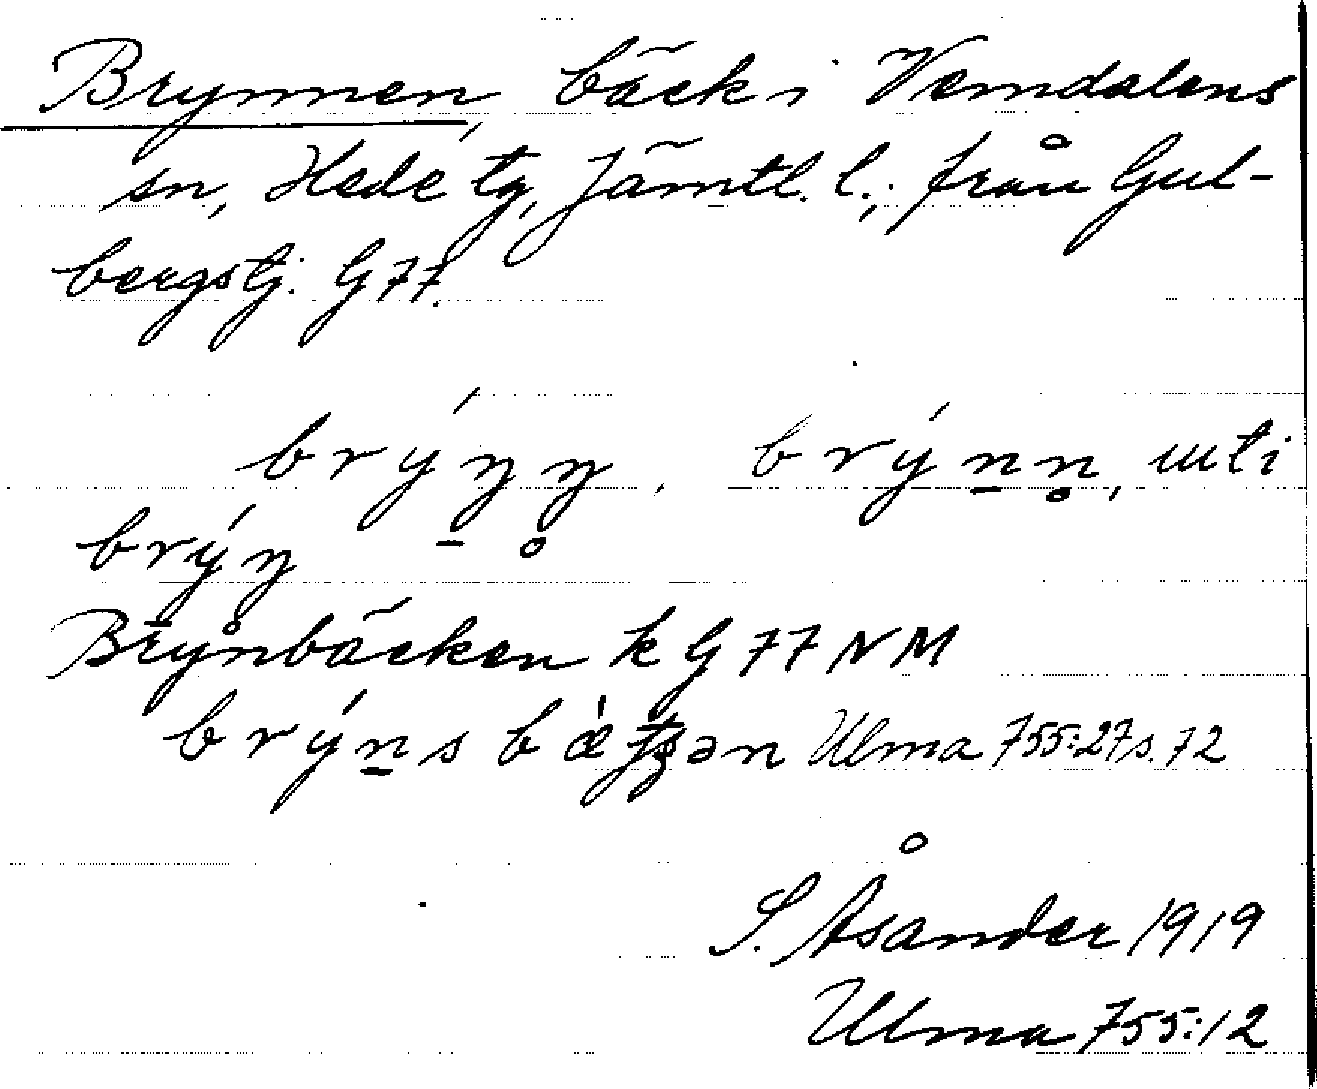 Brynnen, bäck i Vemdalens
sn, Hede tg, Jämtl. l.; från Gul-
bergstj. G 77.
brýŋŋ̥, brýn̠n̥, uti
brýŋ
Brynbäcken k G 77 NM
brýn̠s b
Ulma 755:27 s. 72
S. Åsander 1919
Ulma 755:12